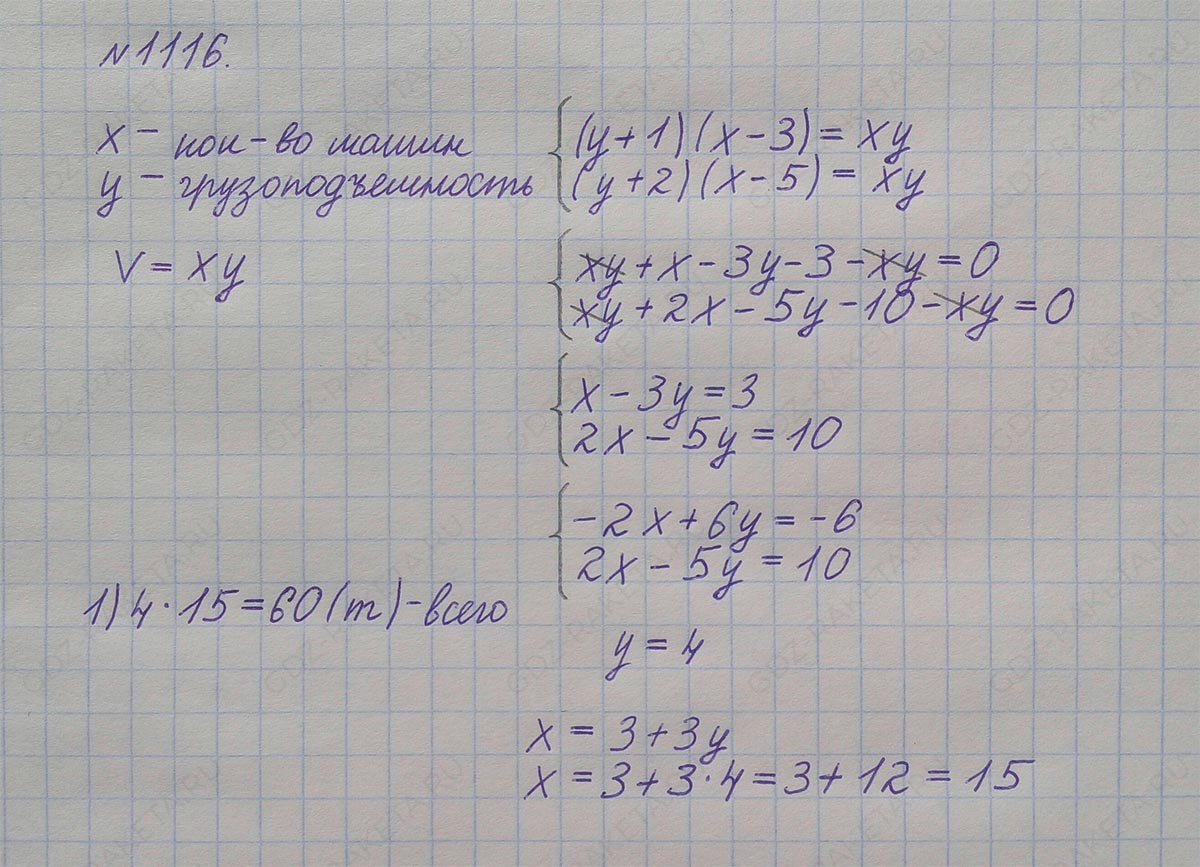 №1116.
x – кол-во машин
y – грузоподъемность
V = xy
(y+1)(x-3) = xy
(y+2)(x-5) = xy
xy + x - 3y - 3 - xy = 0
xy + 2x - 5y - 10 - xy = 0
x - 3y = 3
2x - 5y = 10
-2x + 6y = -6
2x - 5y = 10
y = 4
x = 3 + 3y
x = 3 + 3·4 = 3 + 12 = 15
1) 4·15 = 60 (т) - всего
GDZ-RAKETA.RU